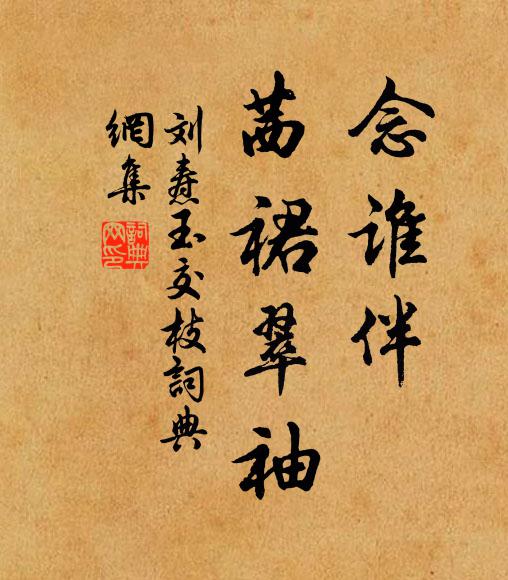 念谁伴
茜裙翠袖
刘焘玉交枝詞典
網集
詞典
网印